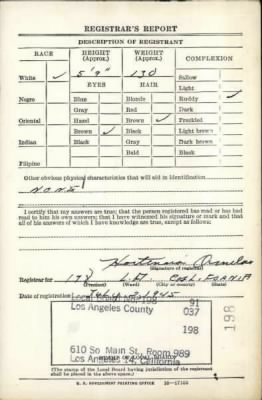 REGISTRAR'S REPORT
DESCRIPTION OF REGISTRANT
RACE HEIGHT (Approx.) WEIGHT (Approx.) COMPLEXION
White ✓ 5' 9" 130 Sallow
EYES HAIR Light
Negro Blue Blonde Ruddy ✓
Gray Red Dark
Oriental Hazel Brown ✓ Freckled
Brown ✓ Black Light brown
Indian Black Gray Dark brown
Bald Black
Filipino
Other obvious physical characteristics that will aid in identification
NONE
I certify that my answers are true; that the person registered has read or has had
read to him his own answers; that I have witnessed his signature or mark and that
all of his answers of which I have knowledge are true, except as follows:
Hortensia Ornelas
(Signature of registrar)
Registrar for 198 L.A. CALIFORNIA
(Precinct) (Ward) (City or county) (State)
Date of registration 1945
Local Board No. 198 91
Los Angeles County 037
198
198
610 So Main St., Room 989
Los Angeles 14, California
(The stamp of the Local Board having jurisdiction of the registrant
shall be placed in the above space.)
U. S. GOVERNMENT PRINTING OFFICE 16-17105